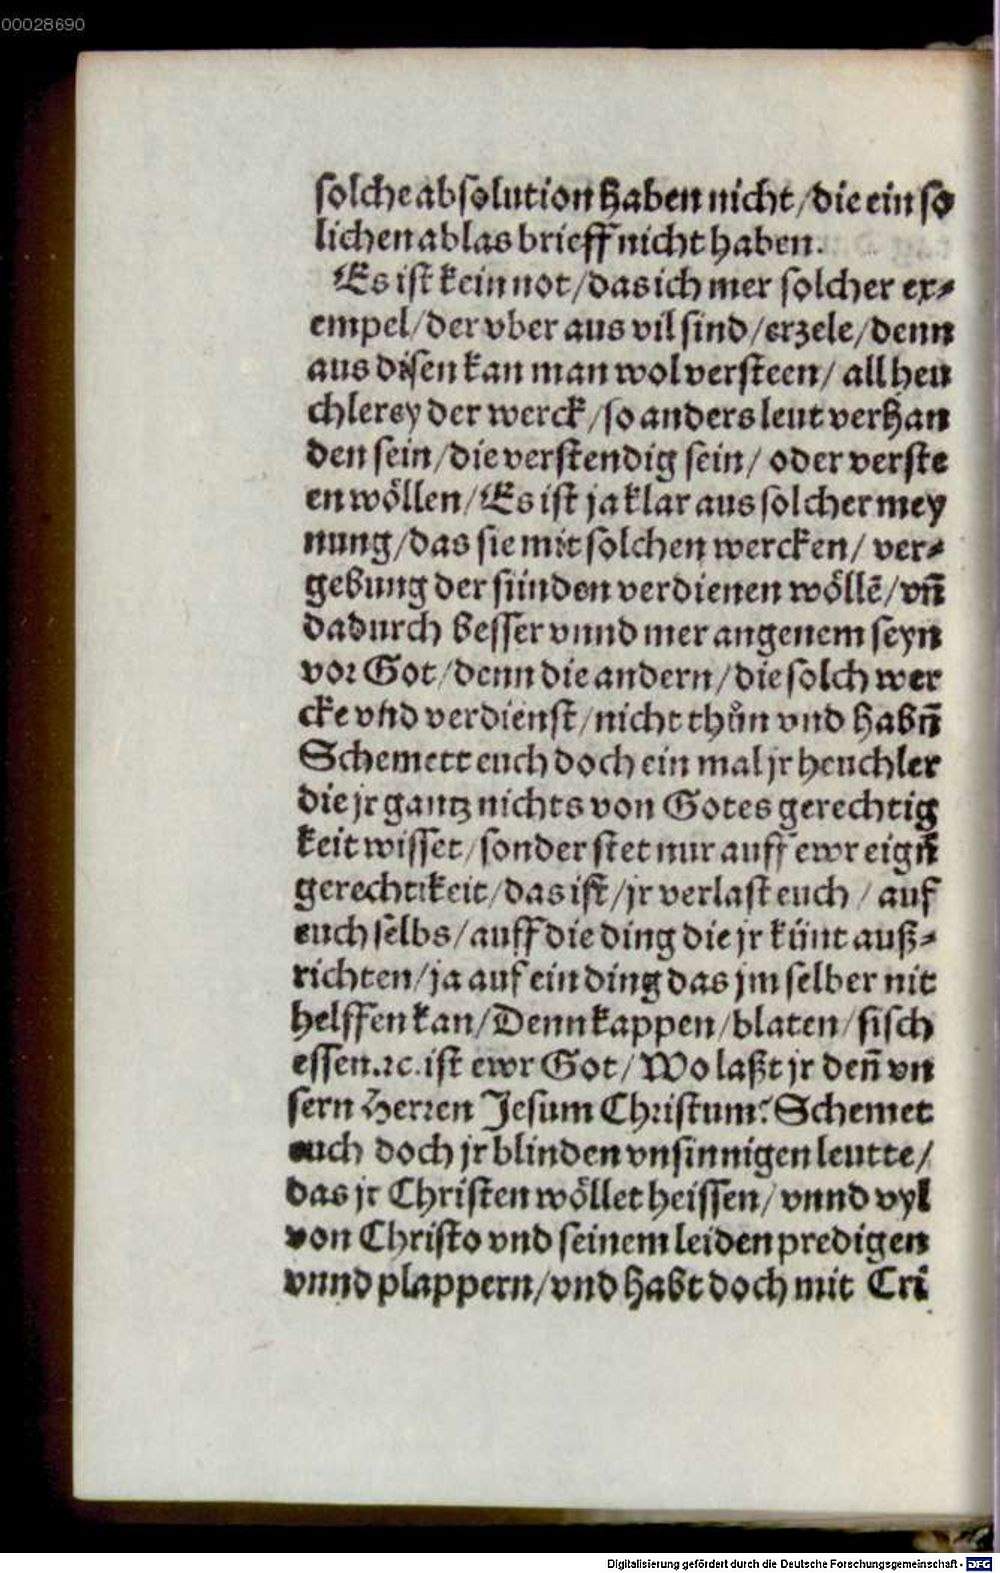 00028690
solche absolution haben nicht/die ein so
lichen ablas brieff nicht haben.
Es ist kein not/das ich mer solcher ex⸗
empel/der vber aus vil sind/erzele/denn
aus disen kan man wol versteen/ all heu
chlerey der werck/so anders leut verhan
den sein/die verstendig sein/ oder verste
en wöllen/Es ist ja klar aus solcher mey
nung/das sie mit solchen wercken/ ver⸗
gebung der sünden verdienen wöllē/vn̄
dadurch besser vnnd mer angenem seyn
vor Got/denn die andern/die solch wer
cke vnd verdienst/nicht thůn vnd habn̄
Schemett euch doch ein mal jr heuchler
die jr gantz nichts von Gotes gerechtig
keit wisset/sonder stet nur auff ewr eign̄
gerechtikeit/das ist/jr verlast euch / auf
euch selbs/auff die ding die jr künt auß⸗
richten/ja auf ein ding das jm selber nit
helffen kan/Denn kappen/blaten/fisch
essen.ꝛc.ist ewr Got/Wo laßt jr den̄ vn
sern Herren Jesum Christum? Schemet
euch doch jr blinden vnsinnigen leutte/
das jr Christen wöllet heissen/vnnd vyl
von Christo vnd seinem leiden predigen
vnnd plappern/vnd habt doch mit Cri
Digitalisierung gefördert durch die Deutsche Forschungsgemeinschaft - DFG